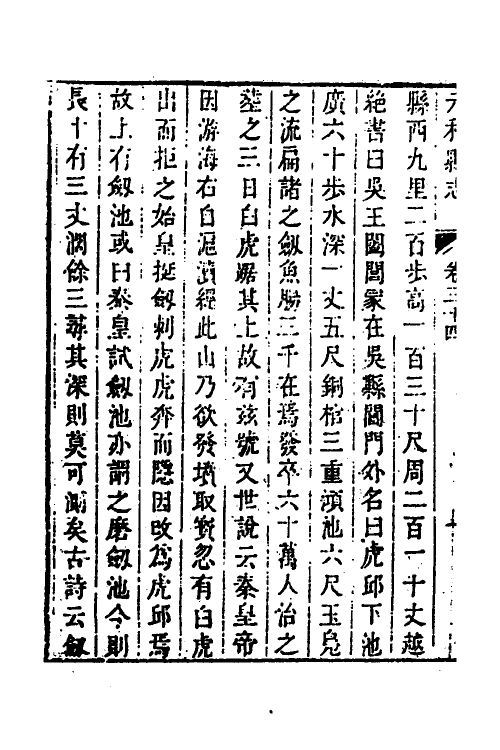 元和縣志 卷三十四
縣西九里二百步高一百三十尺周二百一十丈越
絶書曰吳王闔閭冢在吳縣閶門外名曰虎邱下池
廣六十步水深一丈五尺銅棺三重澒池六尺玉鳧
之流扁諸之劔魚腸三千在焉發卒六十萬人治之
葬之三日白虎踞其上故有茲號又世說云秦皇帝
因游海右自滬瀆經此山乃欲發墳取寶忽有白虎
出而拒之始皇挺劔刺虎虎奔而隱因改爲虎邱焉
故上有劔池或曰秦皇試劔池亦謂之磨劔池今則
長十有三丈濶餘三尋其深則莫可測矣古詩云劔